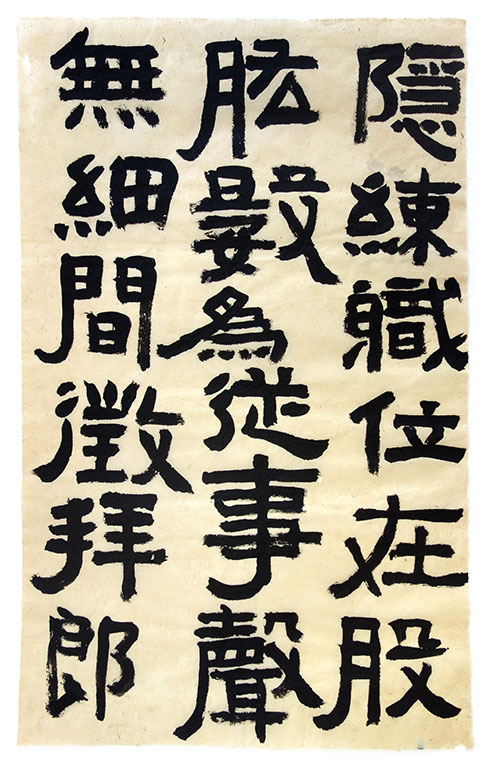 隱練職位在股
肱數為從事聲
無細間徵拜郎